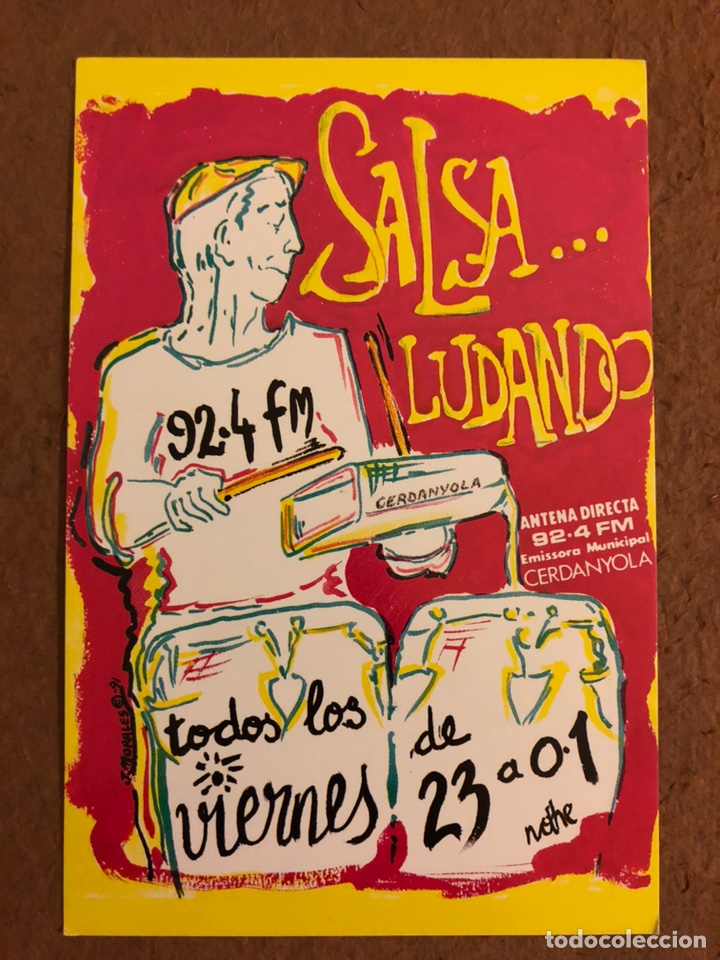 SALSA...
LUDANDO
92.4 fm
CERDANYOLA
ANTENA DIRECTA
92.4 FM
Emissora Municipal
CERDANYOLA
todos los
viernes
de
23 a 0.1
nothe
J.MORALES © 91
todocoleccion
todocoleccion.net